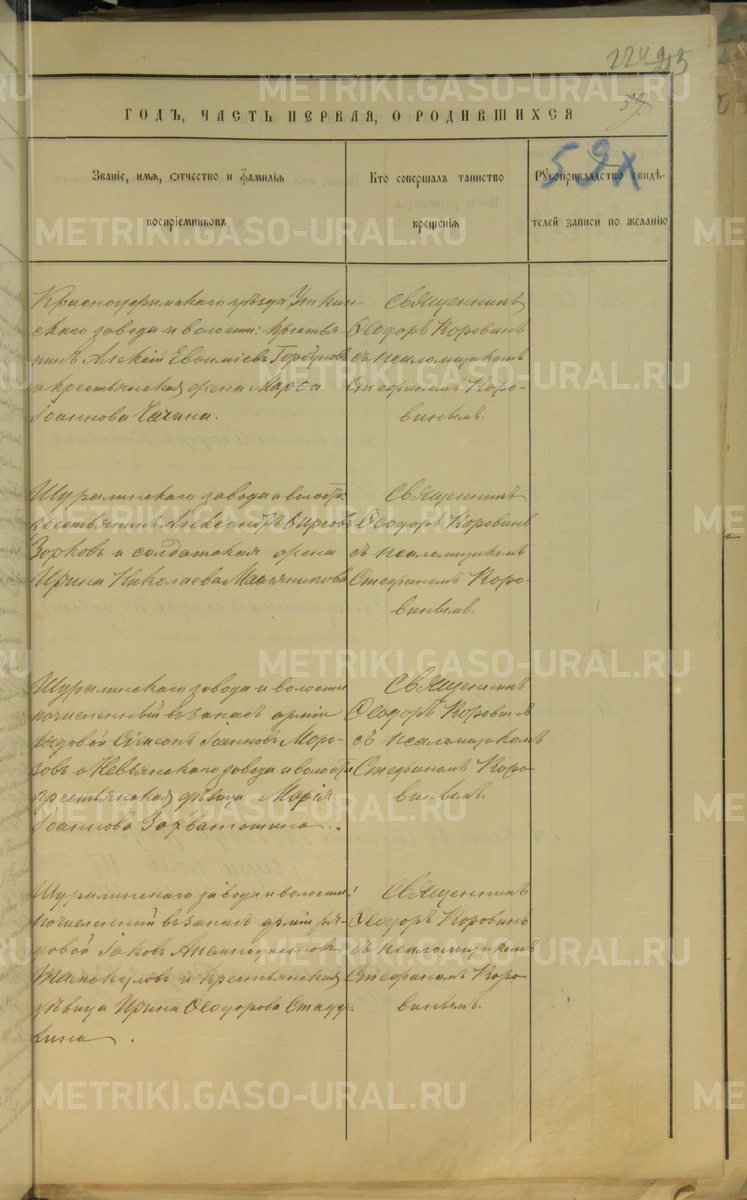 224
METRIKI.GASO-URAL.RU
ГОДЪ, ЧАСТЬ ПЕРВАЯ, О РОДИВШИХСЯ
59.
59
Званіе, имя, отчество и фамилія
воспріемниковъ
Кто совершалъ таинство
крещенія
Рукоприкладство свидѣ-
телей записи по желанію
Красноуфимскаго уѣзда, Уткин-
скаго завода и волости: крестья-
нинъ Алексій Евѳиміевъ Горбуновъ
и крестьянская жена Марѳа
Іоаннова
Священникъ
Ѳеодоръ Коровинъ
съ псаломщикомъ
Стефаномъ Коро-
винымъ.
Шуралинскаго завода и волости:
крестьянинъ Александръ Фирсовъ
и солдатская жена
Ирина Николаева Масленникова
Священникъ
Ѳеодоръ Коровинъ
съ псаломщикомъ
Стефаномъ Коро-
винымъ.
Шуралинскаго завода и волости
зачисленный въ запасъ арміи
рядовой Симеонъ Іоанновъ Моро-
зовъ и Невьянскаго завода и волости
крестьянская дѣвица Марія
Іоаннова
Священникъ
Ѳеодоръ Коровинъ
съ псаломщикомъ
Стефаномъ Коро-
винымъ.
Шуралинскаго завода и волости:
зачисленный въ запасъ арміи ря-
довой Іаковъ
и крестьянская
дѣвица Ирина Ѳеодорова
Священникъ
Ѳеодоръ Коровинъ
съ псаломщикомъ
Стефаномъ Коро-
винымъ.